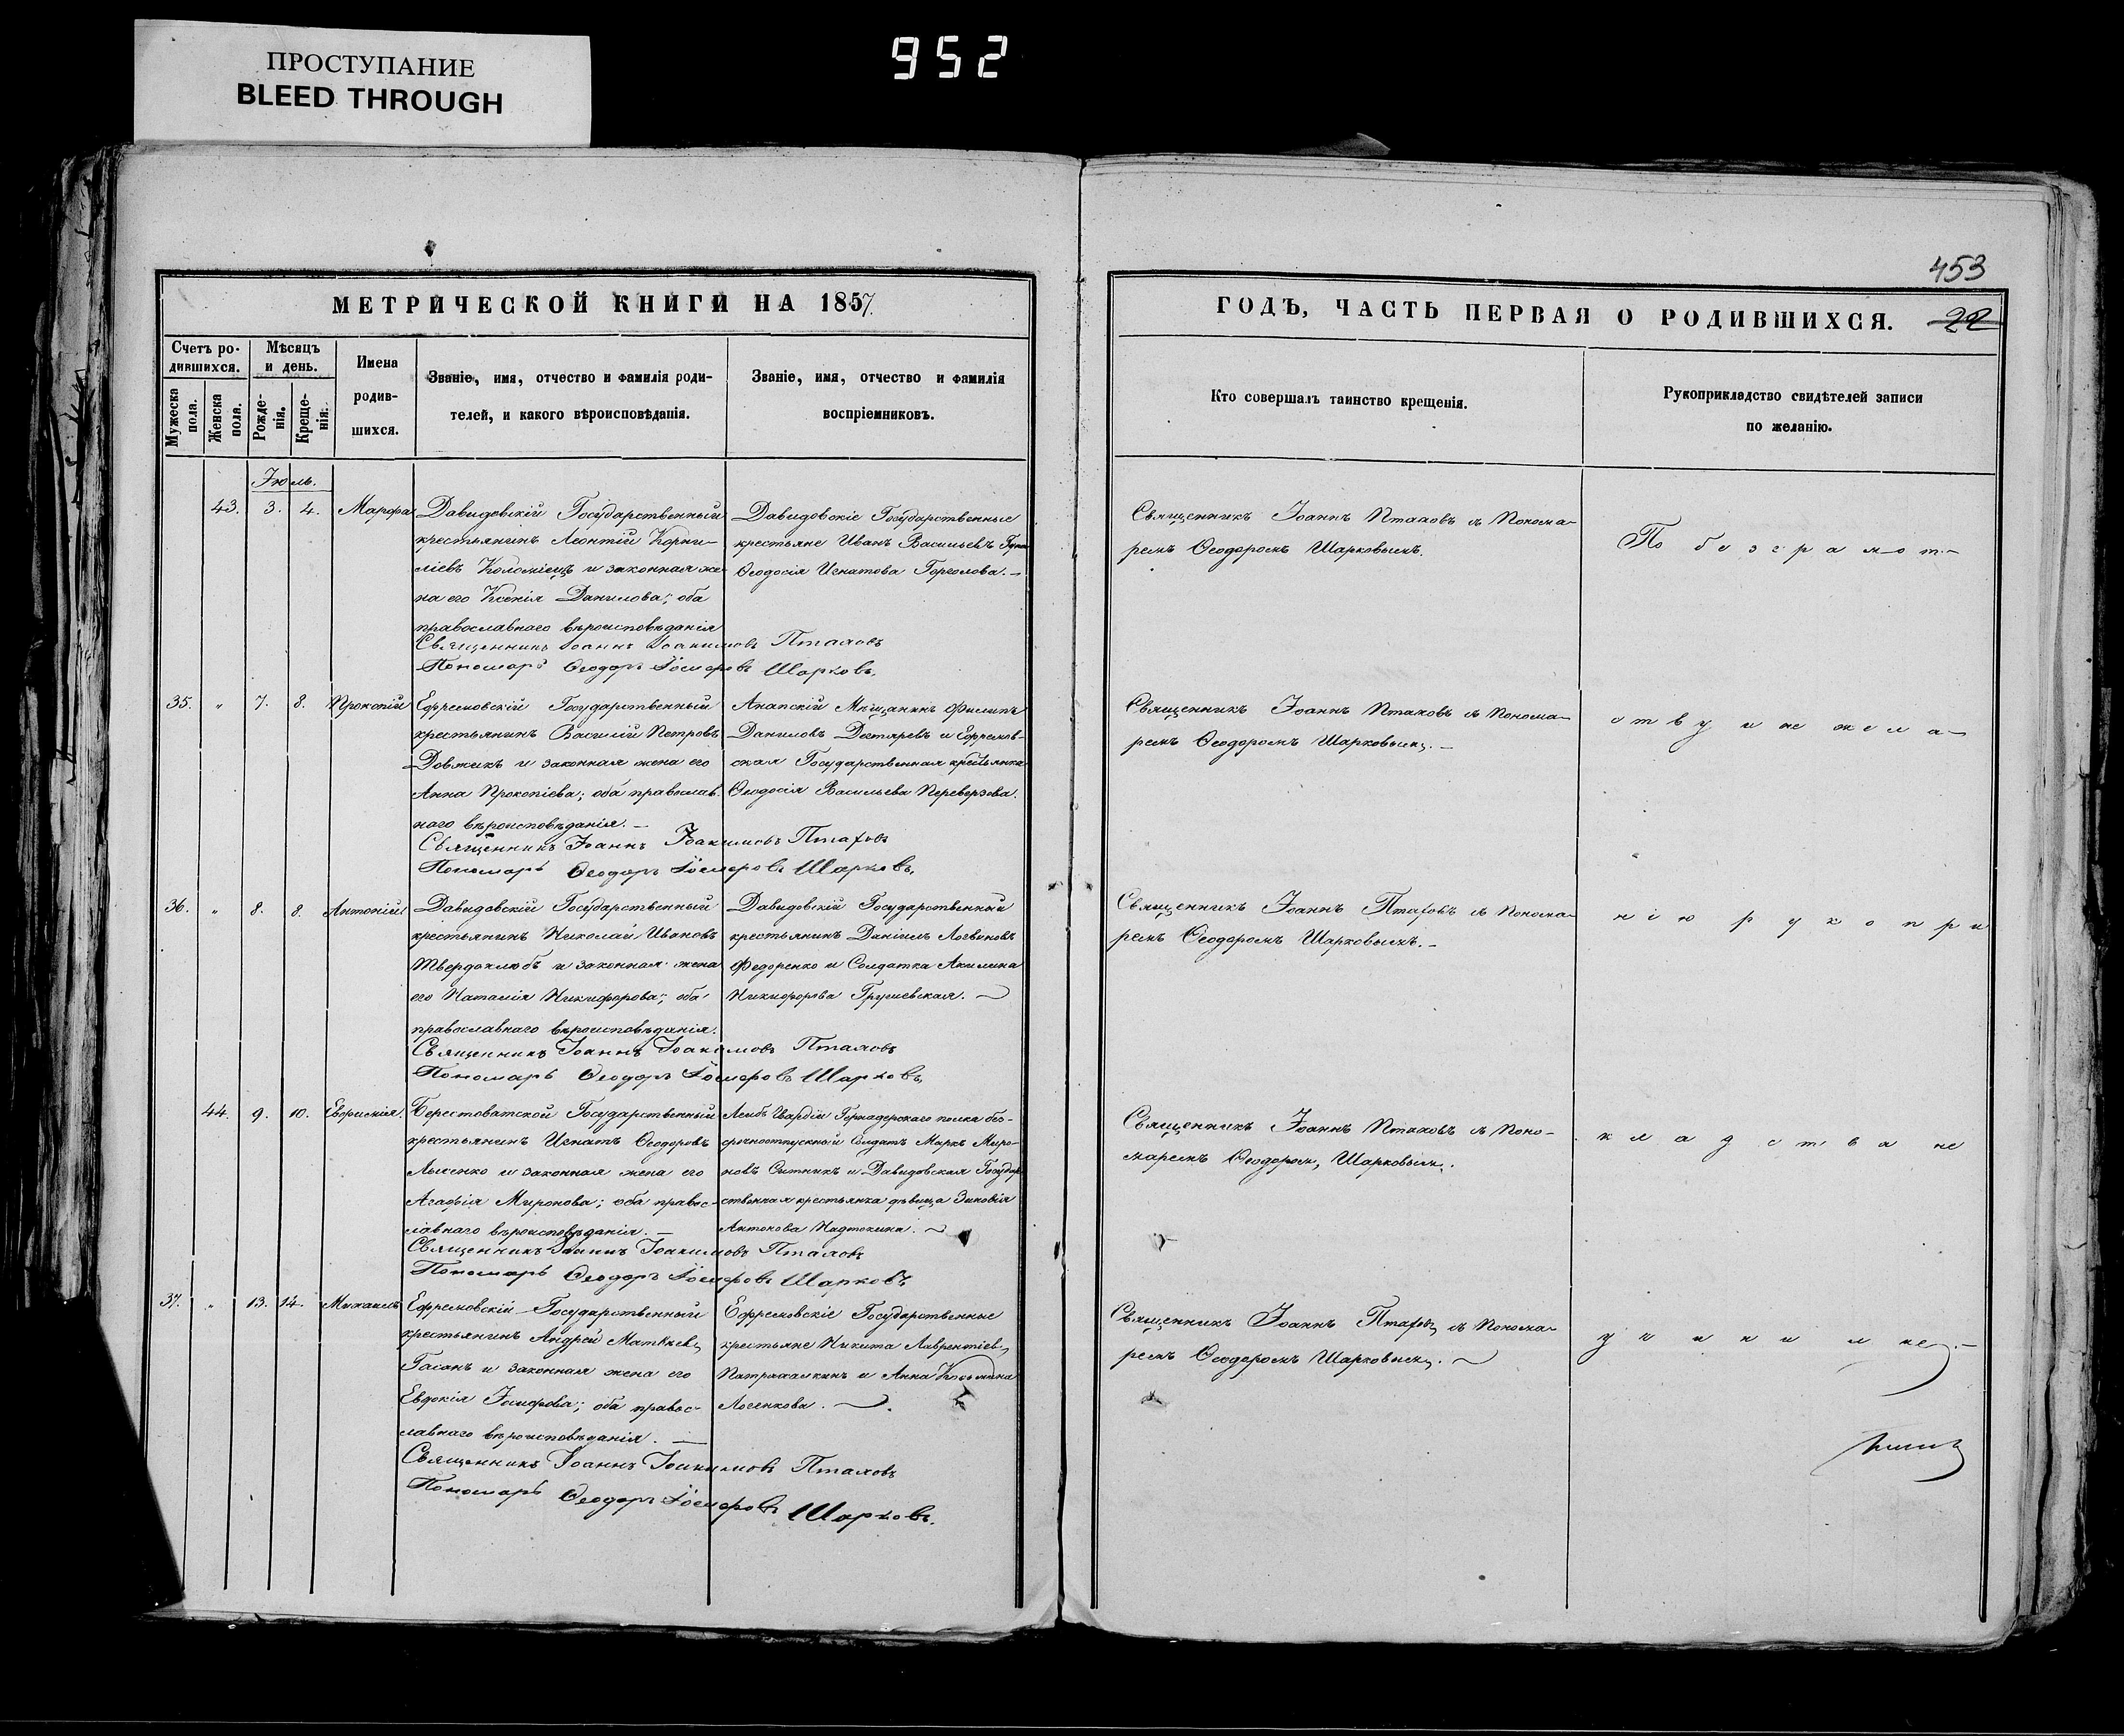 ПРОСТУПАНИЕ
BLEED THROUGH
952
453
МЕТРИЧЕСКОЙ КНИГИ НА 1857.
ГОДЪ, ЧАСТЬ ПЕРВАЯ О РОДИВШИХСЯ. 22
Счетъ родившихся.
Мужеска пола.
Женска пола.
Мѣсяцъ и день.
Рожденія.
Крещенія.
Имена
родив-
шихся.
Званіе, имя, отчество и фамилія роди-
телей, и какого вѣроисповѣданія.
Званіе, имя, отчество и фамилія
воспріемниковъ.
Кто совершалъ таинство крещенія.
Рукоприкладство свидѣтелей записи
по желанію.
Іюль.
43. 3. 4. Марфа
Давидовскій Государственный
крестьянинъ Леонтій Корни-
ліевъ Коломіецъ и законная же-
на его Ксенія Данилова; оба
православнаго вѣроисповѣданія
Давидовскіе Государственные
крестьяне Иванъ Васильевъ
Ѳеодосія Игнатова
Священникъ Іоаннъ Іоакимовъ Птаховъ
Пономарь Ѳеодоръ Шарковъ.
Священникъ Іоаннъ Птаховъ съ Понома-
ремъ Ѳеодоромъ Шарковымъ.
По безграмот-
35. " 7. 8. Прокопій
Ефремовскій Государственный
крестьянинъ Василій Петровъ
Довжикъ и законная жена его
Анна Прокопіева; оба православ-
наго вѣроисповѣданія. —
Анапскій Мѣщанинъ Филипъ
Даниловъ Дегтяревъ и Ефремов-
ская Государственная крестьянка
Ѳеодосія Васильева Переверзова.
Священникъ Іоаннъ Іоакимовъ Птаховъ
Пономарь Ѳеодоръ Шарковъ.
Священникъ Іоаннъ Птаховъ съ Понома-
ремъ Ѳеодоромъ Шарковымъ. —
ству и не жела-
36. " 8. 8. Антоній
Давидовскій Государственный
крестьянинъ Николай Ивановъ
Твердохлѣбъ и законная жена
его Наталія Никифорова; оба
православнаго вѣроисповѣданія.
Давидовскій Государственный
крестьянинъ Даніилъ Логвиновъ
Федоренко и Солдатка Акилина
Никифорова Грушевская.
Священникъ Іоаннъ Іоакимовъ Птаховъ
Пономарь Ѳеодоръ Шарковъ
Священникъ Іоаннъ Птаховъ съ Понома-
ремъ Ѳеодоромъ Шарковымъ. —
нію рукопри
44. 9. 10. Евфимія.
Берестоватской Государственный
крестьянинъ Игнатъ Ѳеодоровъ
Лысенко и законная жена его
Агафія Миронова; оба правос-
лавнаго вѣроисповѣданія. —
Лейбъ Гвардіи полка без-
срочноотпускный Солдатъ Маркъ Миро-
новъ Ситникъ и Давидовская Государ-
ственная крестьянка дѣвица Зиновія
Антонова
Священникъ Іоаннъ Іоакимовъ Птаховъ
Пономарь Ѳеодоръ Шарковъ
Священникъ Іоаннъ Птаховъ съ Поно-
маремъ Ѳеодоромъ Шарковымъ.
кладства не
37. " 13. 14. Михаилъ
Ефремовскій Государственный
крестьянинъ Андрей Матвѣевъ
и законная жена его
Евдокія Іосифова; оба правос-
лавнаго вѣроисповѣданія. —
Ефремовскіе Государственные
крестьяне Никита Лаврентіевъ
и Анна Козьмина
Логенкова.
Священникъ Іоаннъ Іоакимовъ Птаховъ
Пономарь Ѳеодоръ Шарковъ.
Священникъ Іоаннъ Птаховъ съ Понома-
ремъ Ѳеодоромъ Шарковымъ.
учинили